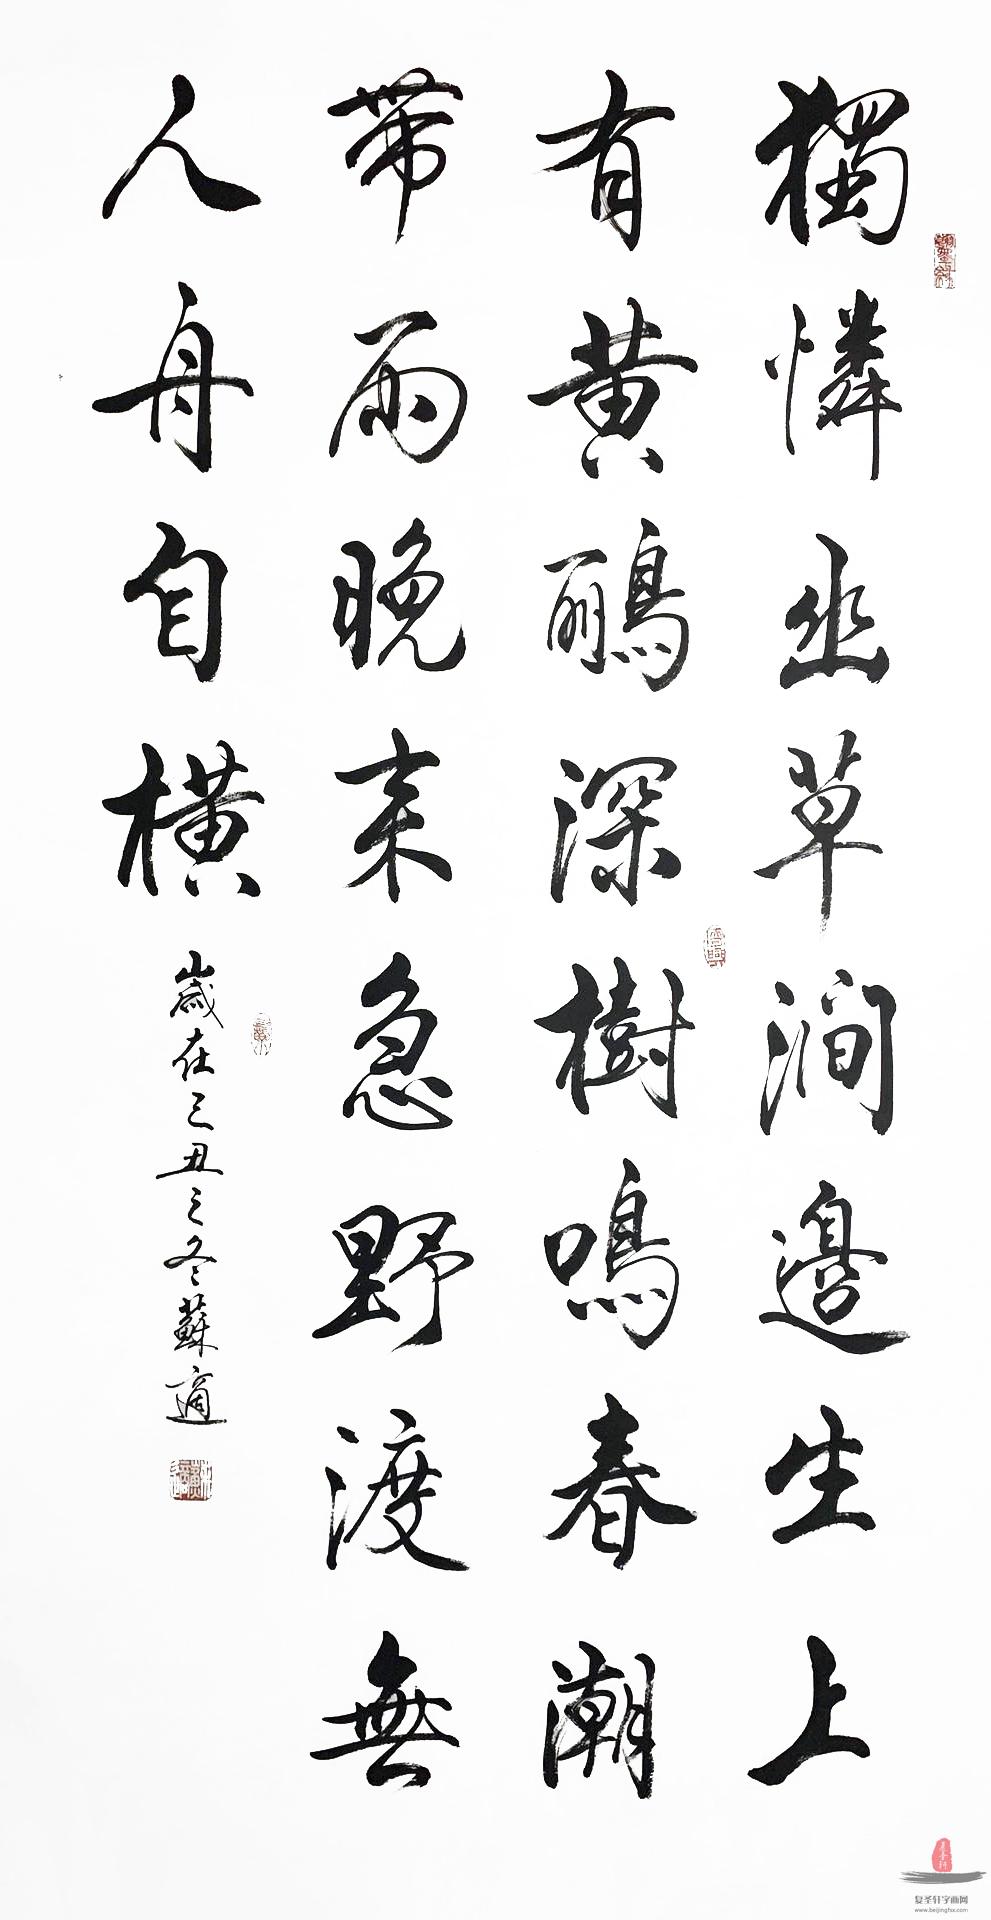 獨憐幽草澗邊生上
有黄鸝深樹鳴春潮
带雨晚来急野渡無
人舟自横
歲在己丑之冬蘇適
复圣轩字画网
www.beijinghx.com